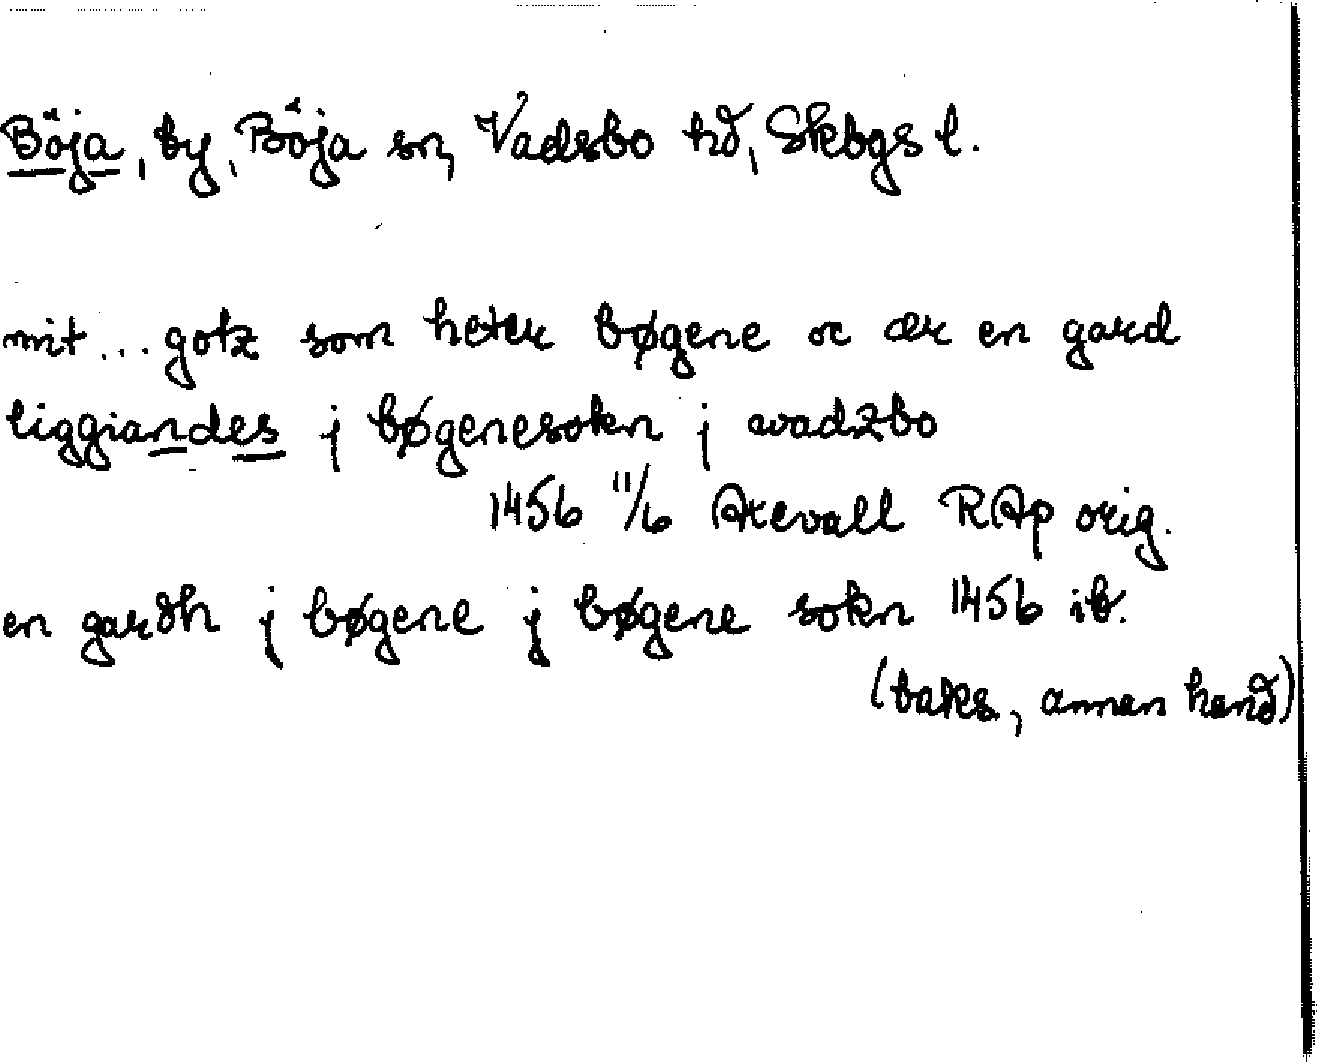 Böja, by, Böja sn, Vadsbo hd, Skbgs l.
mit... gotz som heter bøgene oc ær en gard
liggiandes j bøgenesokn j wadzbo
1456 11/6 Axevall RAp orig.
en gardh j bøgene j bøgene sokn 1456 ib.
(baks., annan hand)